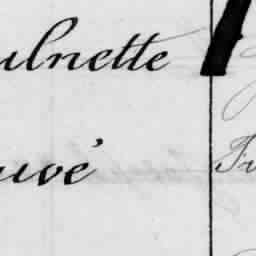 ulnette
uvé